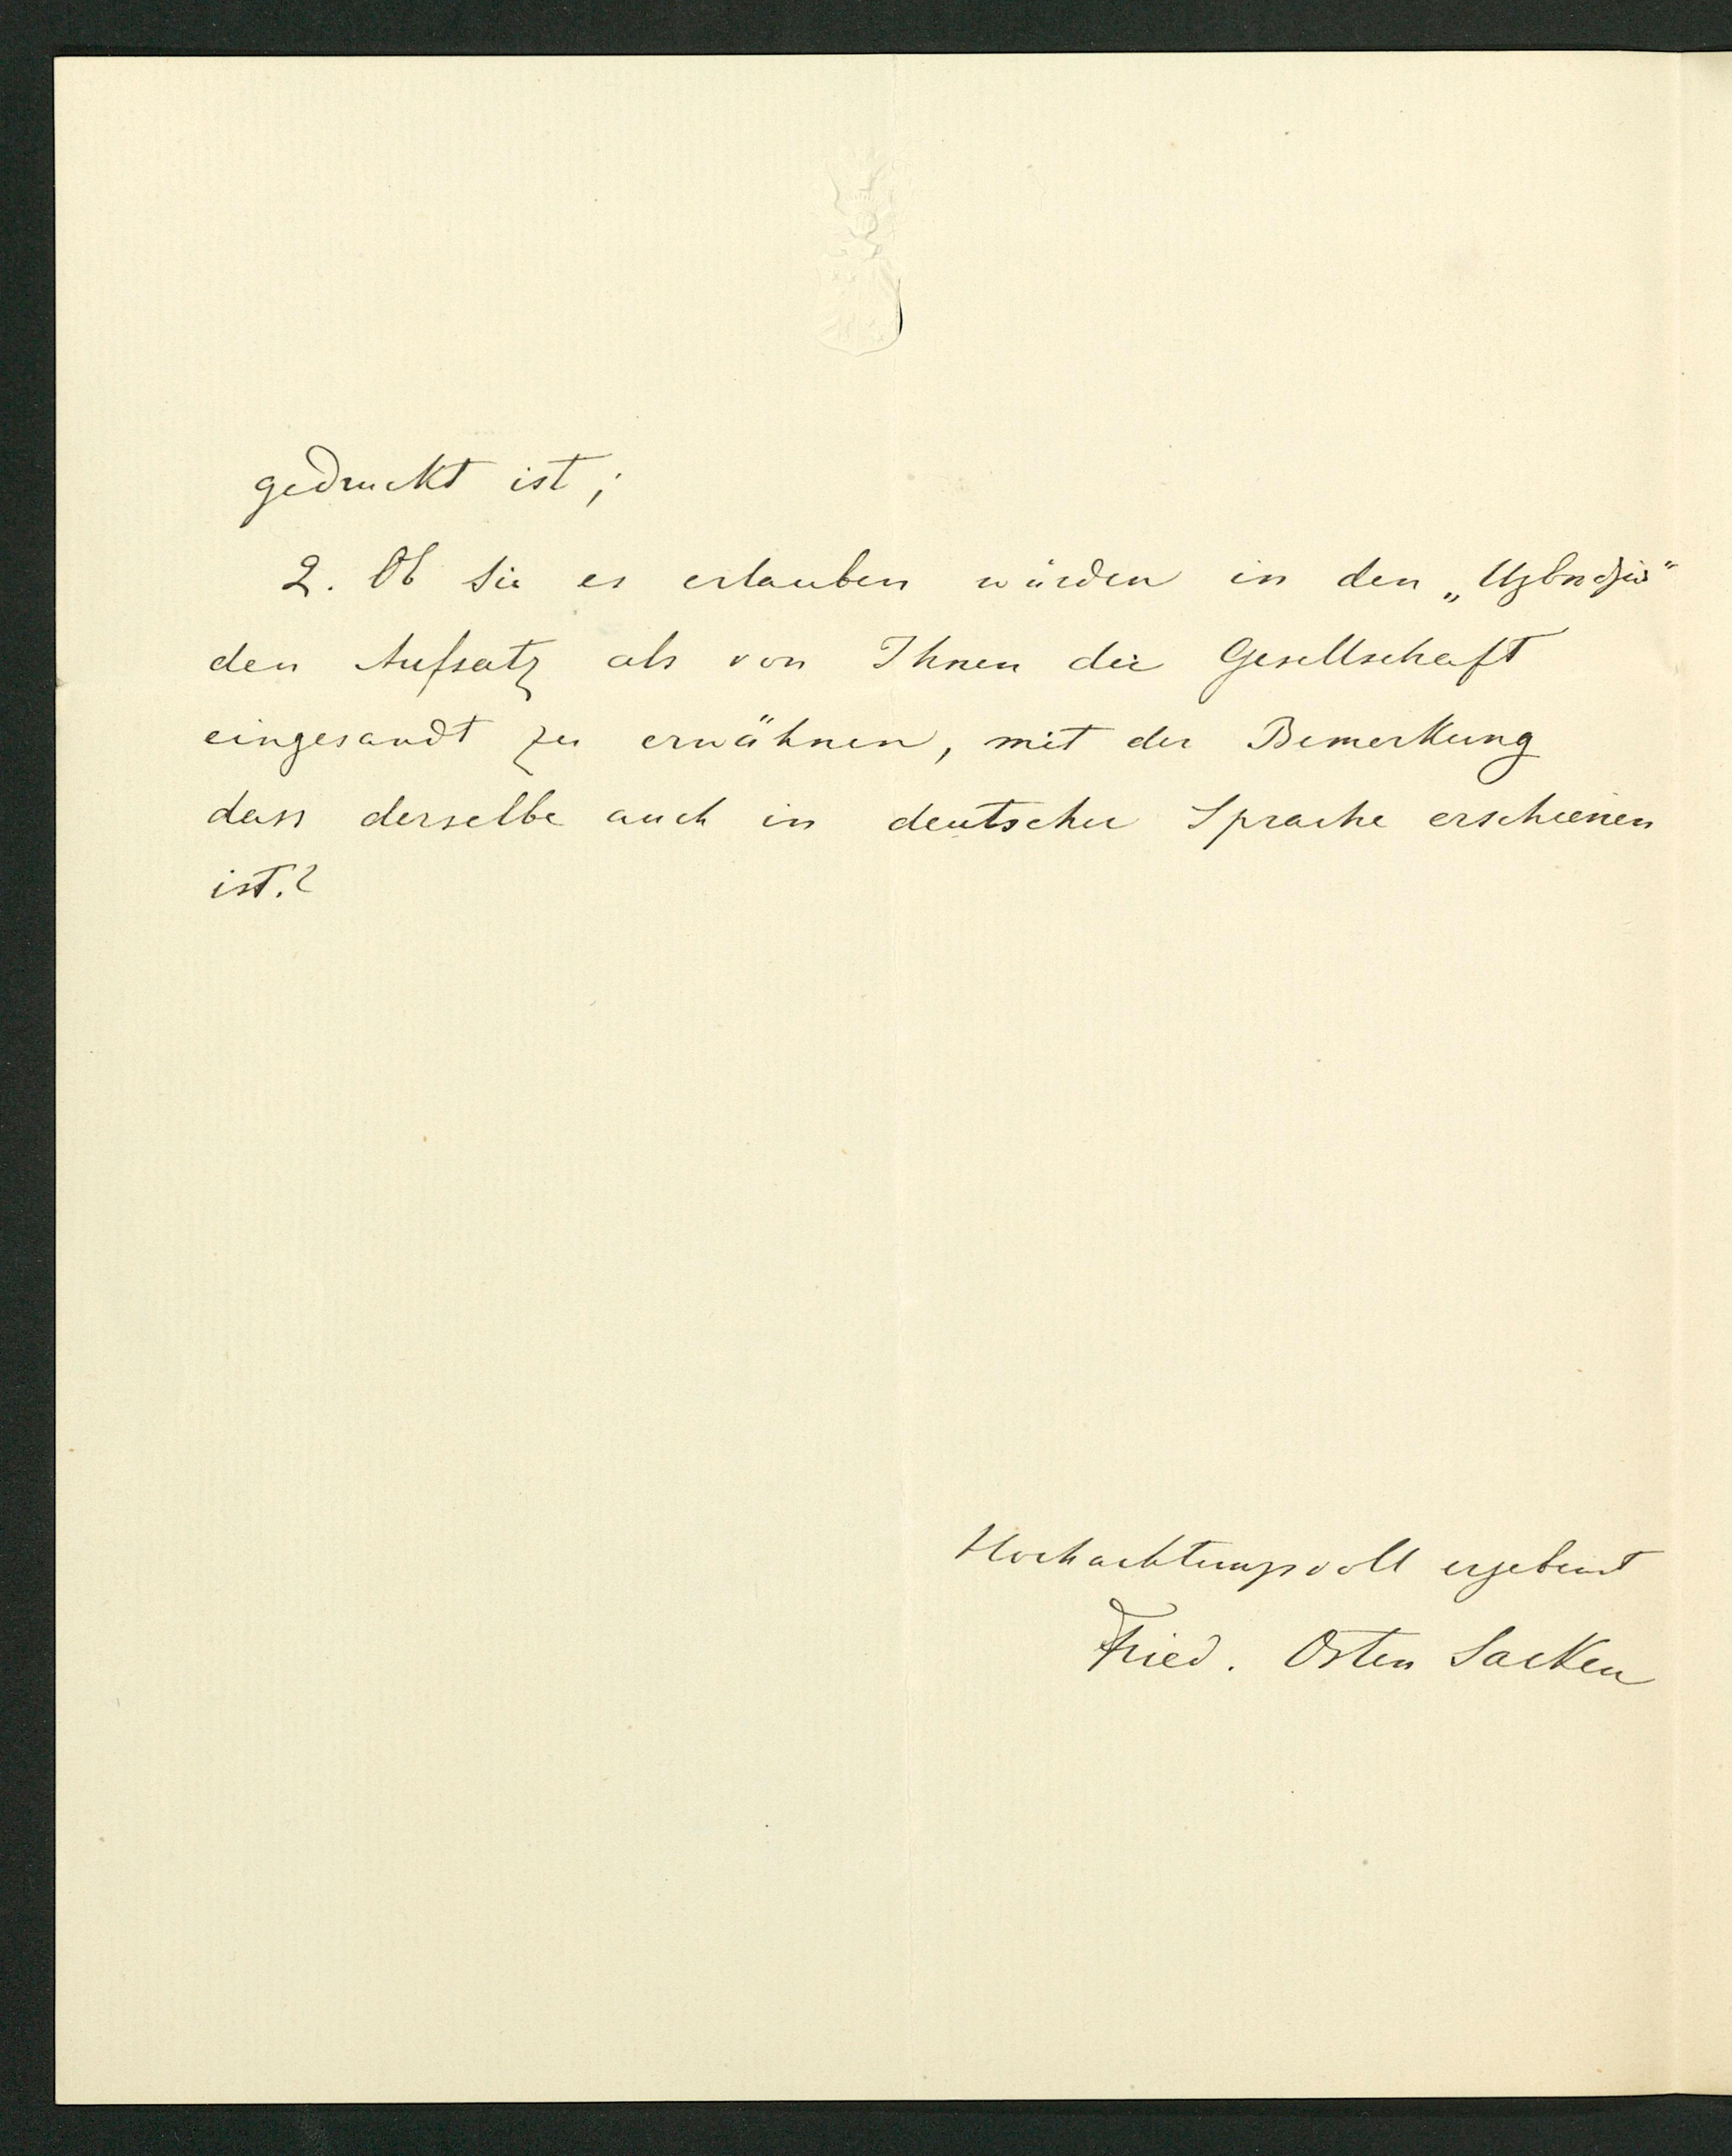 gedruckt ist;
2. Ob Sie es erlauben würden in den „Извѣстія“
den Aufsatz als von Ihnen die Gesellschaft
eingesandt zu erwähnen, mit der Bemerkung
dass derselbe auch in deutscher Sprache erschienen
ist.?
Hochachtungsvoll ergebenst
Fried. Osten Sacken